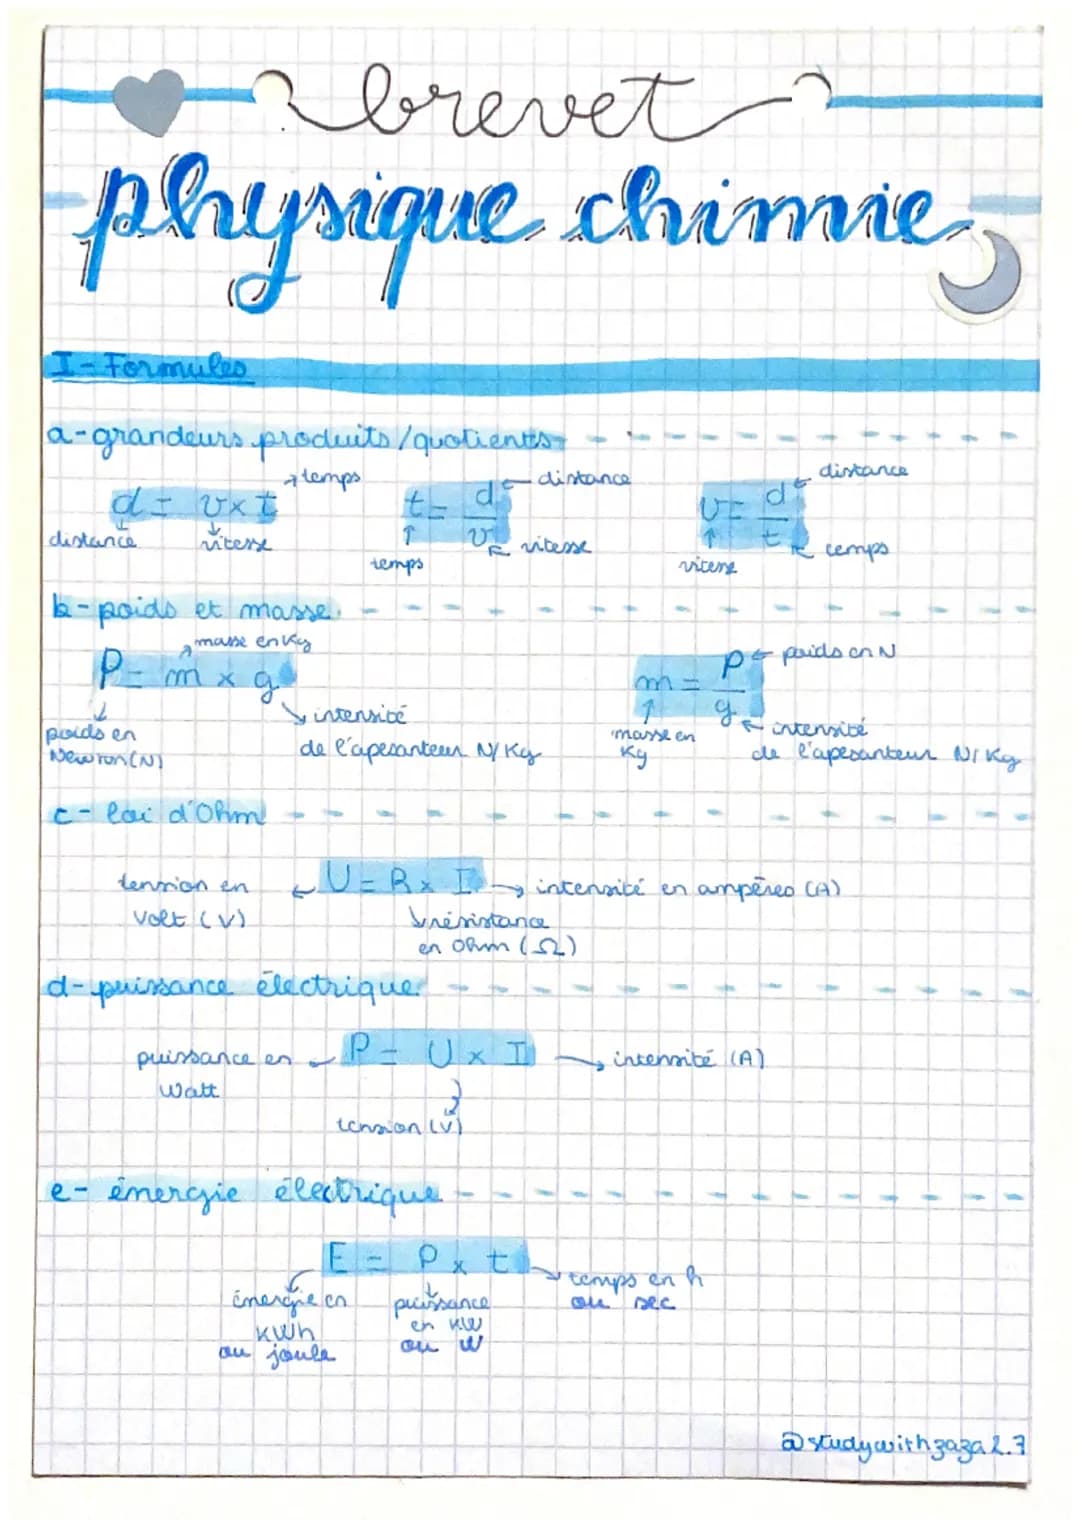 brevet
physique chimie
I - Formules
a - grandeurs produits / quotients
→ temps
d = v x t
distance
vitesse
t = d / v
distance
vitesse
temps
v = d / t
distance
temps
vitesse
b - poids et masse
masse en Kg
P = m x g
poids en
Newton (N)
intensité
de l'apesanteur N/Kg
m = P / g
poids en N
masse en
Kg
intensité
de l'apesanteur N/Kg
c - loi d'Ohm
tension en
Volt (V)
U = R x I
intensité en ampères (A)
résistance
en Ohm (Ω)
d - puissance électrique
puissance en
Watt
P = U x I
intensité (A)
tension (V)
e - énergie électrique
E = P x t
temps en h
ou sec
énergie en
KWh
ou joule
puissance
en KW
ou W
@studywithzaza2.7